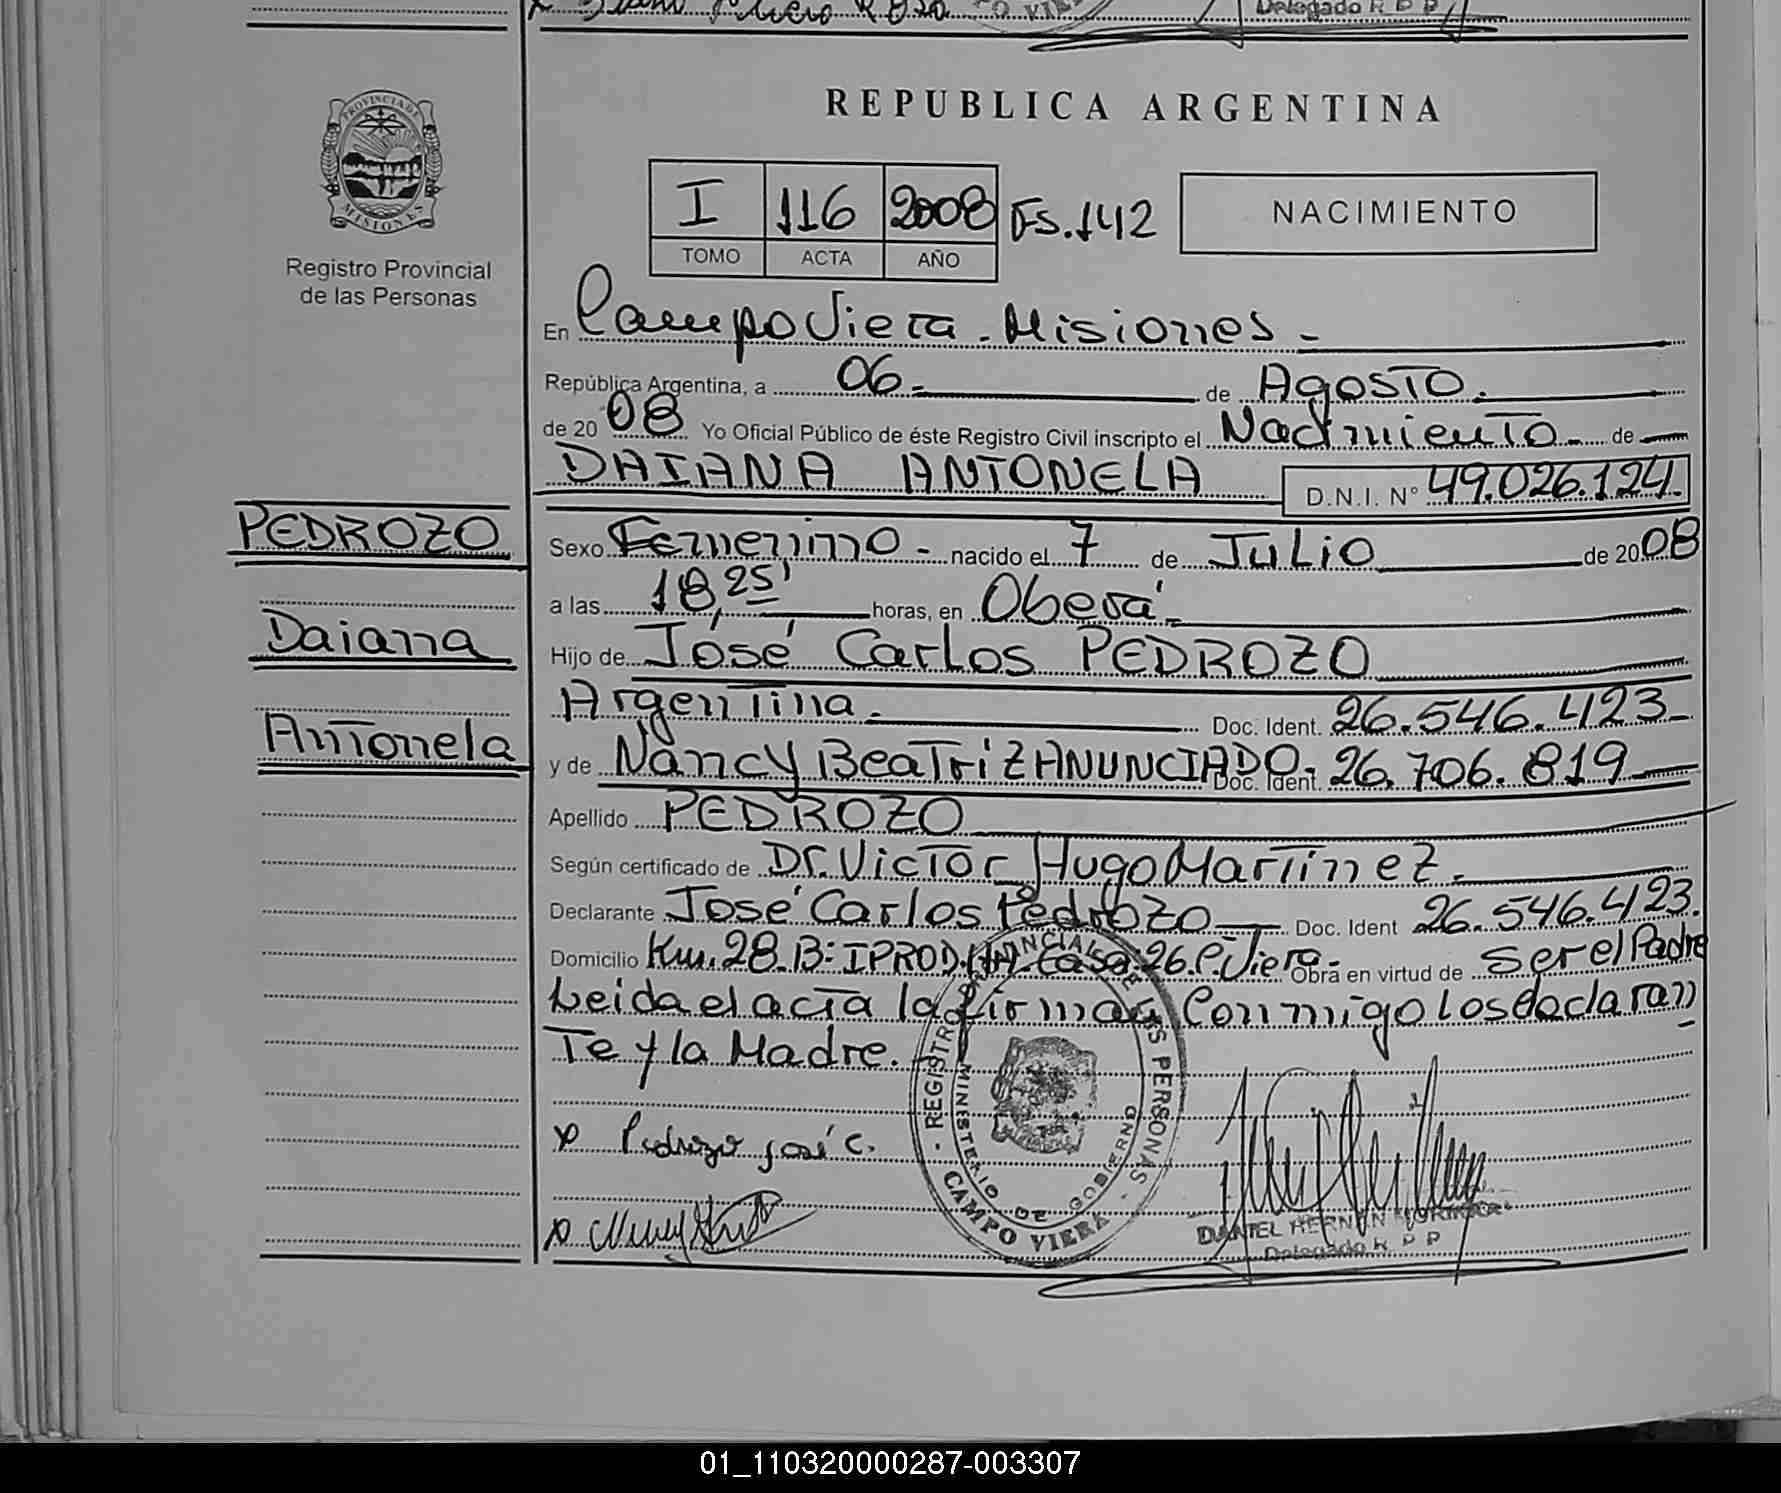 Delegado R P P
PROVINCIA DE
MISIONES
Registro Provincial
de las Personas
REPUBLICA ARGENTINA
I 116 2008 Fs.142
TOMO ACTA AÑO
NACIMIENTO
En Campo Viera - Misiones -
República Argentina, a 06 - de Agosto.
de 2008 Yo Oficial Público de éste Registro Civil inscripto el Nacimiento de
DAIANA ANTONELA D.N.I. N° 49.026.124.
PEDROZO
Daiana
Antonela
Sexo Femenino - nacido el 7 de Julio de 2008
a las 18,25' horas, en Oberá -
Hijo de José Carlos PEDROZO
Argentina. Doc. Ident. 26.546.423
y de Nancy BeaTriz ANUNCIADO. Doc. Ident. 26.706.819
Apellido PEDROZO
Según certificado de Dr. Victor Hugo Martinez.
Declarante José Carlos Pedrozo Doc. Ident 26.546.423.
Domicilio Km. 28. B: IPROD.HA. Casa: 26. C. Viera - Obra en virtud de ser el Padre
Leida el acta la firman Conmigo los declaran
Te y la Madre.
x Pedrozo José C.
REGISTRO PROVINCIAL DE LAS PERSONAS
MINISTERIO DE GOBIERNO
CAMPO VIERA
DANIEL HERNAN
Delegado R P P
01_110320000287-003307